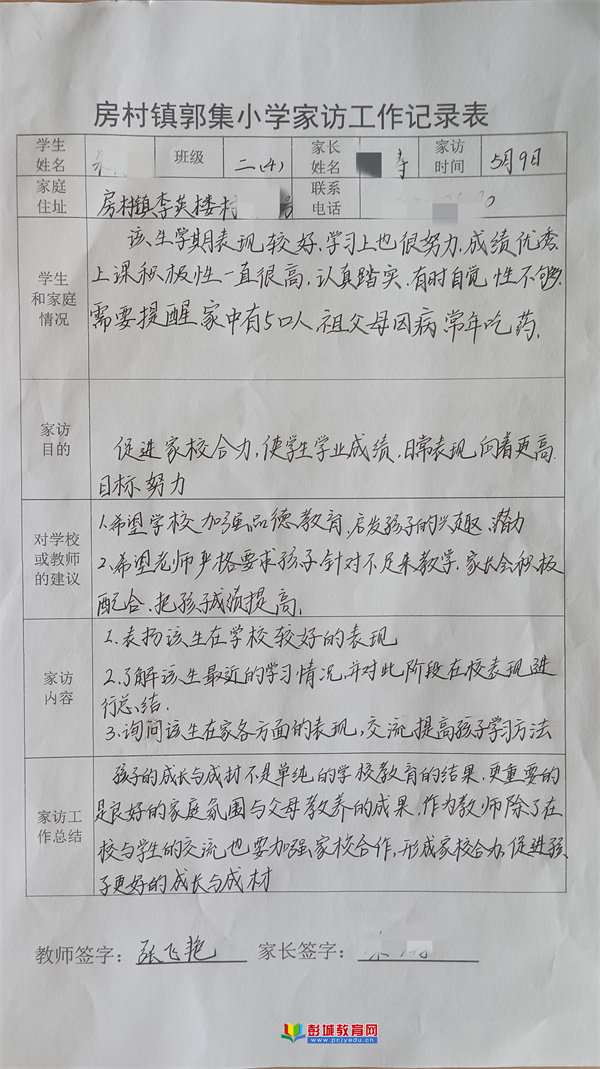 房村镇郭集小学家访工作记录表
学生姓名 班级 二(4) 家长姓名 家访时间 5月9日
家庭住址 房村镇李英楼村 联系电话
学生和家庭情况
该生学期表现较好,学习上也很努力,成绩优秀
上课积极性一直很高,认真踏实.有时自觉性不够
需要提醒家中有5口人,祖父母因病常年吃药.
家访目的
促进家校合力,使学生学业成绩.日常表现向着更高
目标努力
对学校或教师的建议
1.希望学校加强品德教育,启发孩子的兴趣、潜力
2.希望老师严格要求孩子针对不足来教学.家长会积极
配合.把孩子成绩提高.
家访内容
1.表扬该生在学校较好的表现
2.了解该生最近的学习情况,并对此阶段在校表现进
行总结.
3.询问该生在家各方面的表现,交流提高孩子学习方法
家访工作总结
孩子的成长与成材不是单纯的学校教育的结果.更重要的
是良好的家庭氛围与父母教养的成果.作为教师除了在
校与学生的交流也要加强家校合作,形成家校合力,促进孩
子更好的成长与成材
教师签字:张飞艳 家长签字:
彭城教育网
www.pcjyedu.cn